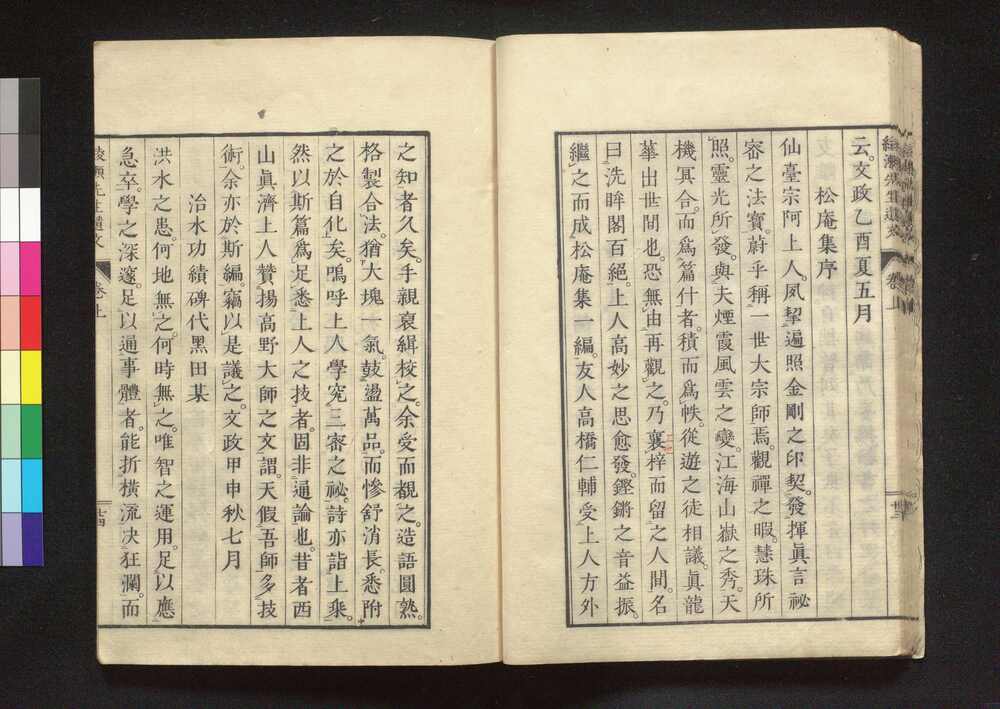 云。文政乙酉夏五月
松庵集序
仙臺宗阿上人。夙挈遍照金剛之印契。發揮眞言祕
密之法寶。蔚乎稱一世大宗師焉。觀禪之暇。慧珠所
照。靈光所發。與夫煙霞風雲之變。江海山嶽之秀。天
機冥合。而爲篇什者。積而爲帙。從遊之徒相議。眞龍
華出世間也。恐無由再觀之。乃襄梓而留之人間。名
曰洗眸閣百絕。上人高妙之思愈發。鏗鏘之音益振。
繼之而成松庵集一編。友人高橋仁輔受上人方外
之知者久矣。手親裒緝校之。余受而覩之。造語圓熟。
格製合法。猶大塊一氣。鼓盪萬品。而慘舒消長。悉附
之於自化矣。嗚呼上人學究三密之祕。詩亦詣上乘。
然以斯篇爲足悉上人之技者。固非通論也。昔者西
山眞濟上人贊揚高野大師之文謂。天假吾師多技
術。余亦於斯編。竊以是議之。文政甲申秋七月
治水功績碑代黑田某
洪水之患。何地無之。何時無之。唯智之運用。足以應
急卒。學之深邃。足以通事體者。能折橫流決狂瀾。而
綾瀨先生遺文 卷上